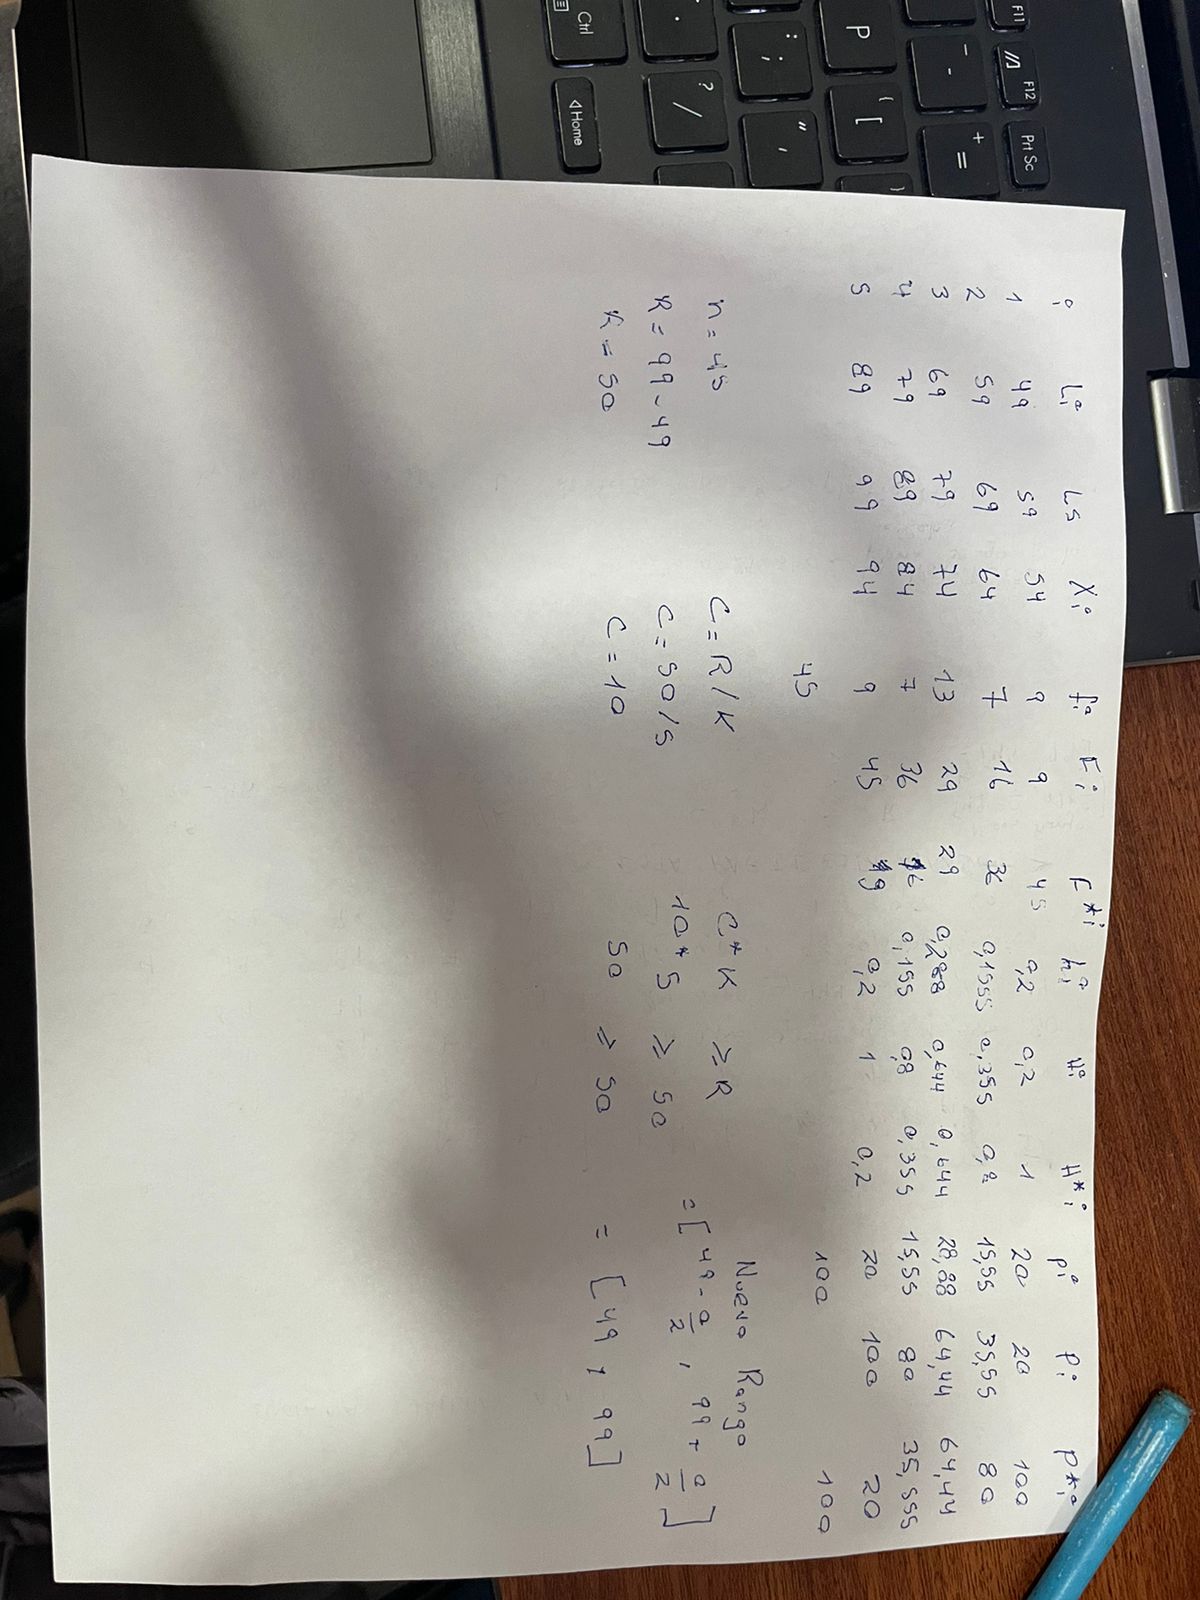 i Li Ls Xi fi Fi F*i hi Hi H*i pi Pi P*i
1 49 59 54 9 9 45 0,2 0,2 1 20 20 100
2 59 69 64 7 16 36 0,1555 0,355 0,8 15,55 35,55 80
3 69 79 74 13 29 29 0,288 0,644 0,644 28,88 64,44 64,44
4 79 89 84 7 36 16 0,155 0,8 0,355 15,55 80 35,555
5 89 99 94 9 45 9 0,2 1 0,2 20 100 20
45 100 100
n = 45 C = R/K C*K ≥ R Nuevo Rango
R = 99 - 49 C = 50/5 10*5 ≥ 50 = [49 - 0/2, 99 + 0/2]
R = 50 C = 10 50 ≥ 50 = [49, 99]
F11
F12
Prt Sc
P
{ [
_ -
+ =
: ;
" '
? /
.
Ctrl
Home